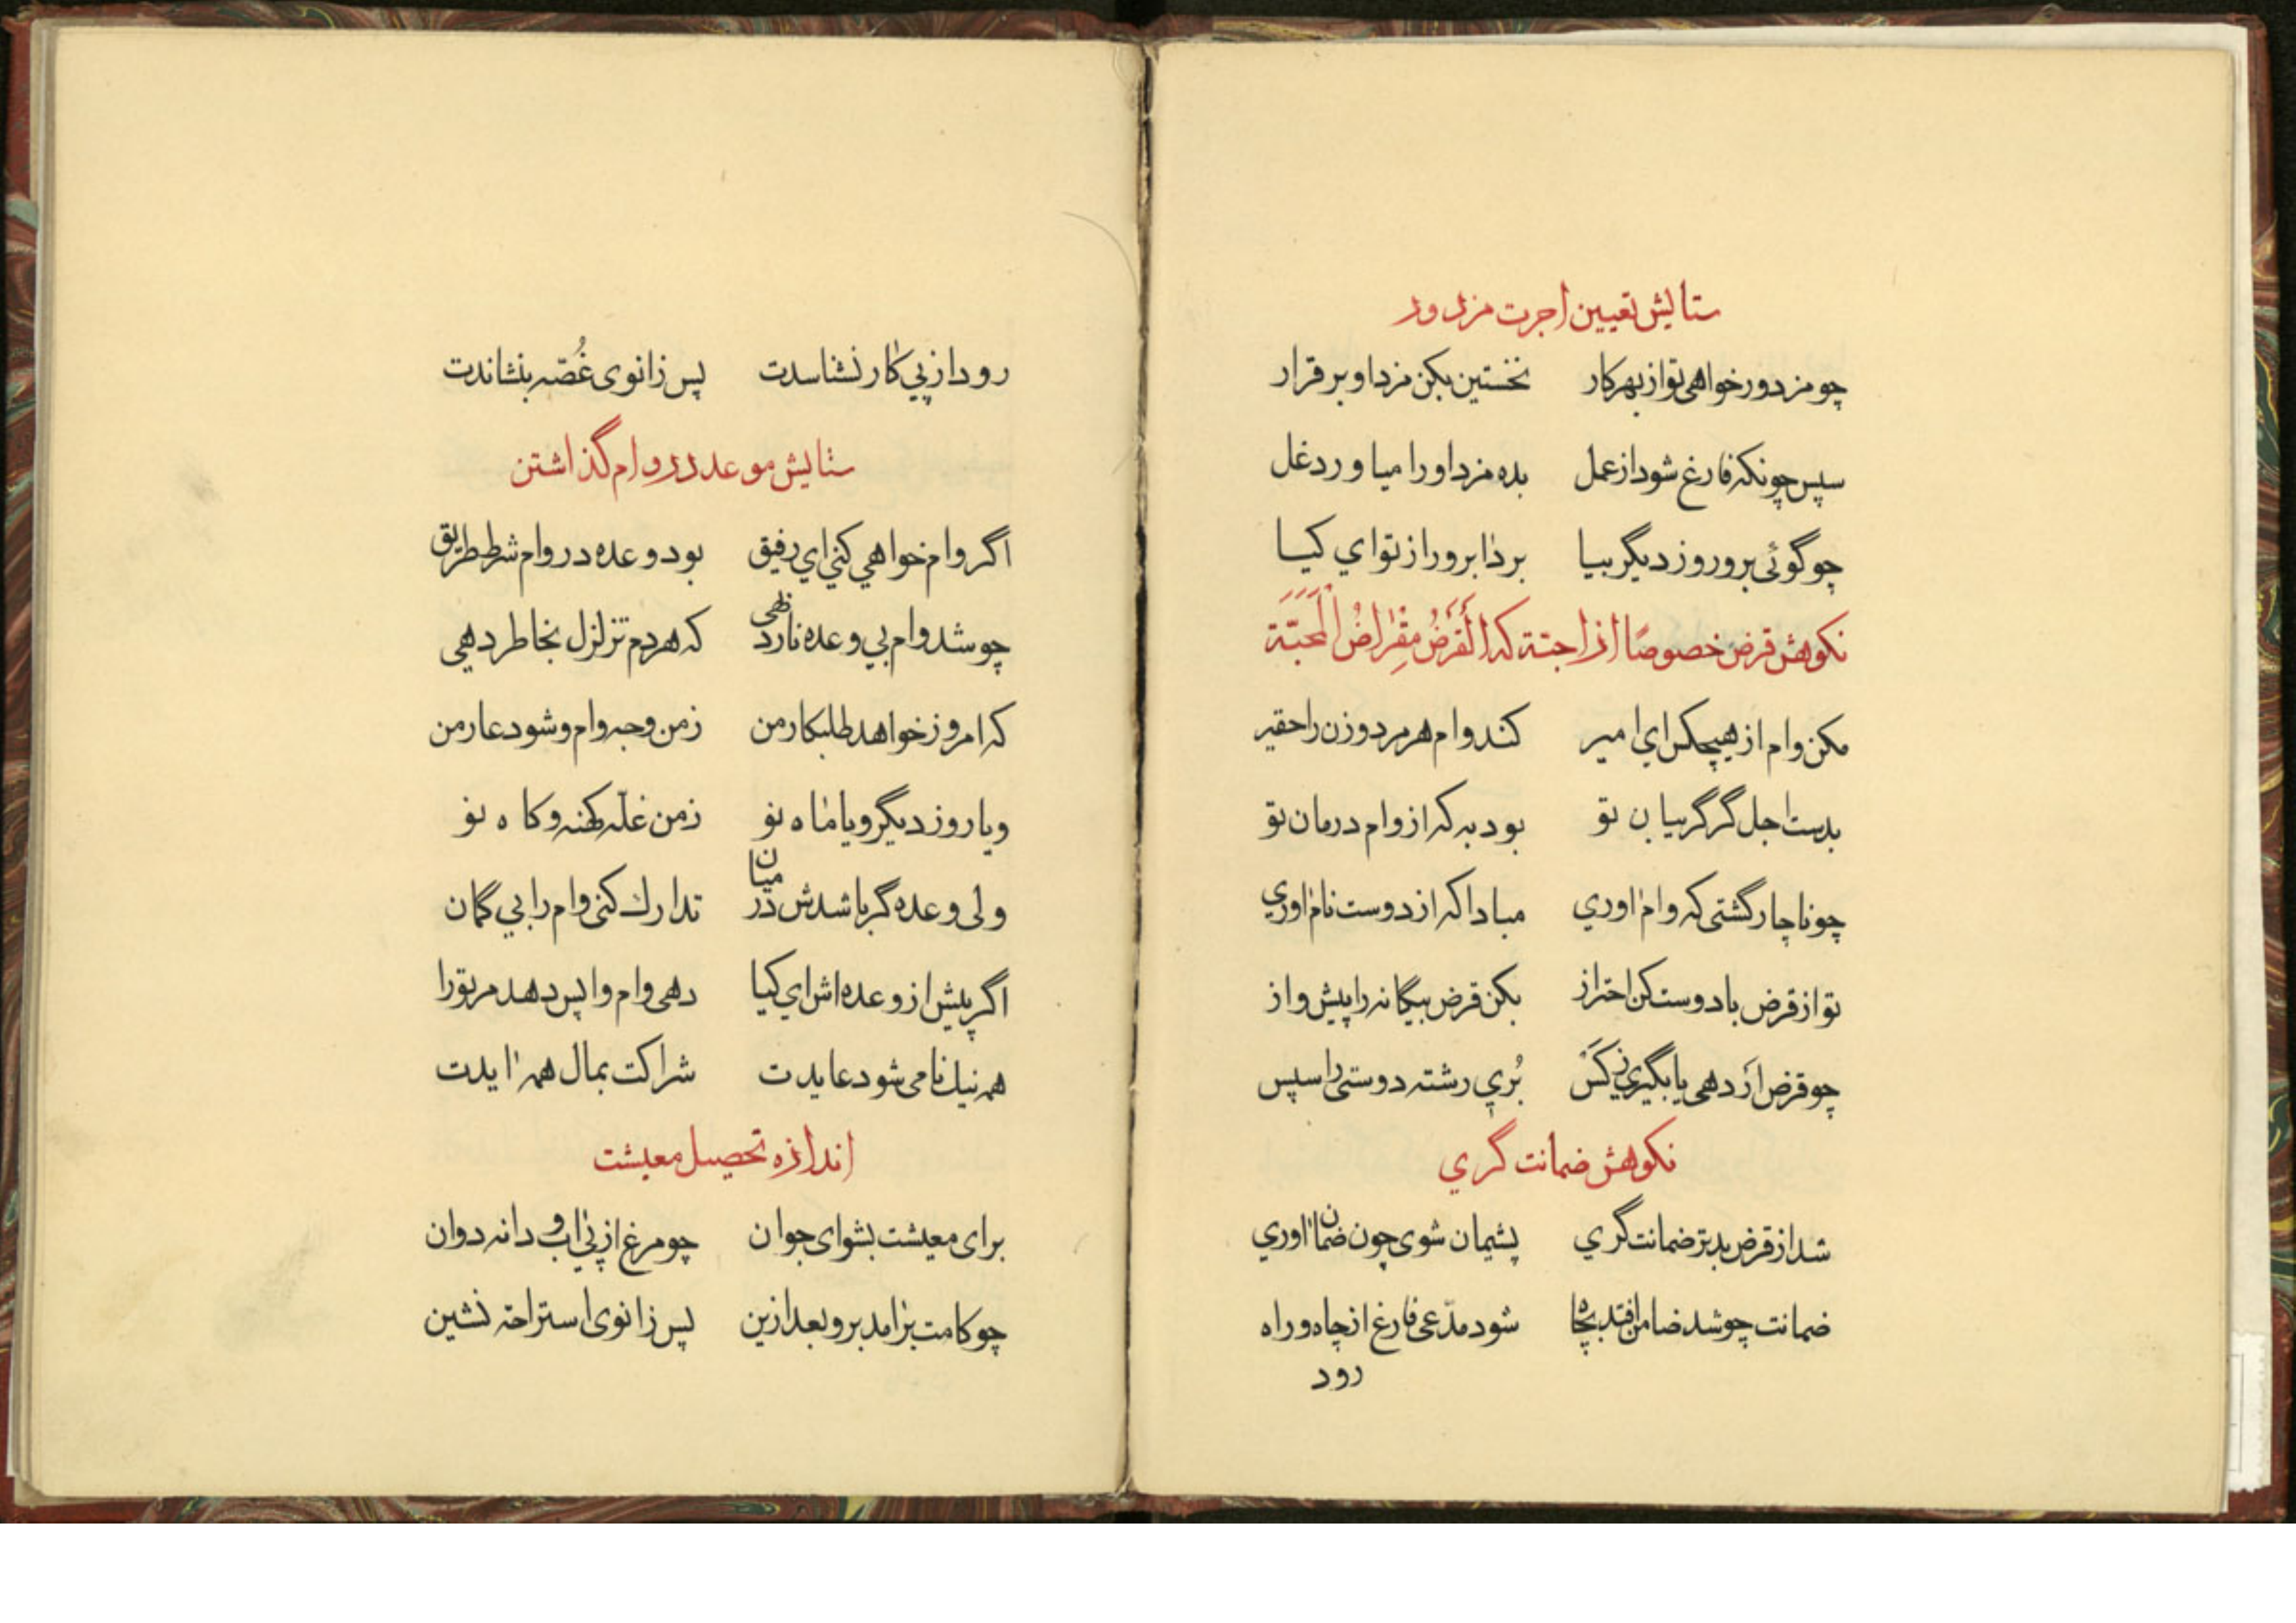 ستایش تعیین اجرت مزدور
چو مزدور خواهی تو از بهر کار نخستین بکن مزد او برقرار
سپس چونکه فارغ شود از عمل بده مزد او را میاور دغل
چو گوئی برو روز دیگر بیا برد ابرو را از تو اي کیا
نکوهش قرض خصوصًا از احبّة که اَلْقَرْضُ مِقْرَاضُ الْمَحَبَّة
مکن وام از هیچکس اي امیر کند وام هر مرد و زن را حقیر
بدست اجل گر گریبان تو بود به که از وام درمان تو
چو ناچار گشتی که وام اوري مبادا که از دوست نام اوري
تو از قرض با دوست کن احتراز بکن قرض بیگانه را پیشواز
چو قرض اَر دهی یا بگیري ز کَس بُري رشته دوستی را سپس
نکوهش ضمانت گري
شد از قرض بدتر ضمانت گري پشیمان شوی چون ضمان اوري
ضمانت چو شد ضامن افتد بچاه شود مدّعی فارغ از چاه و راه
رود
رود از پي کار نشناسدت پس زانوی غُصّه بنشاندت
ستایش موعد در وام گذاشتن
اگر وام خواهي کني اي رفیق بود وعده در وام شرط طریق
چو شد وام بي وعده نارد بهی که هردم تزلزل بخاطر دهي
که امروز خواهد طلبکار من ز من وجه وام و شود عار من
و یا روز دیگر و یا ماه نو ز من غلّه کهنه و کاه نو
ولی وعده گر باشدش در میان تدارك کنی وام را بي گمان
اگر پیش از وعده اش اي کیا دهی وام واپس دهد مر تو را
همه نیك نامی شود عایدت شراکت بمال همه ایدت
اندازه تحصیل معیشت
برای معیشت بشو ای جوان چو مرغ از پي اب و دانه دوان
چو کامت برامد برو بعد ازین پس زانوی استراحة نشین